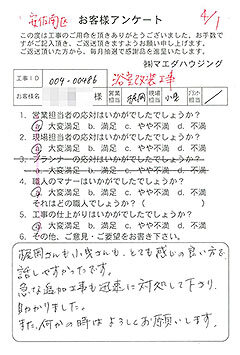 安佐南区 お客様アンケート 4/1
この度は工事のご用命を頂きありがとうございました。お手数で
すがご記入頂き、ご返送頂きますようお願い申し上げます。
ご返送頂いた方から、毎月抽選で感謝品を進呈いたします。
㈱マエダハウジング
工事ID 004-00486 浴室改装工事
お客様名 様 営業担当 現場担当 小曳
1. 営業担当者の応対はいかがでしたでしょうか?
a. 大変満足 b. 満足 c. やや不満 d. 不満
2. 現場担当者の応対はいかがでしたでしょうか?
a. 大変満足 b. 満足 c. やや不満 d. 不満
3. プランナーの応対はいかがでしたでしょうか?
a. 大変満足 b. 満足 c. やや不満 d. 不満
4. 職人のマナーはいかがでしたでしょうか?
a. 大変満足 b. 満足 c. やや不満 d. 不満
それはどの職人でしょうか? ( )
5. 工事の仕上がりはいかがでしたでしょうか?
a. 大変満足 b. 満足 c. やや不満 d. 不満
6. その他、ご意見・ご要望をお書き下さい。
さんも小曳さんも、とても感じの良い方で
話しやすかったです。
急な追加工事も迅速に対処して下さり
助かりました。
また、何かの時はよろしくお願いします。